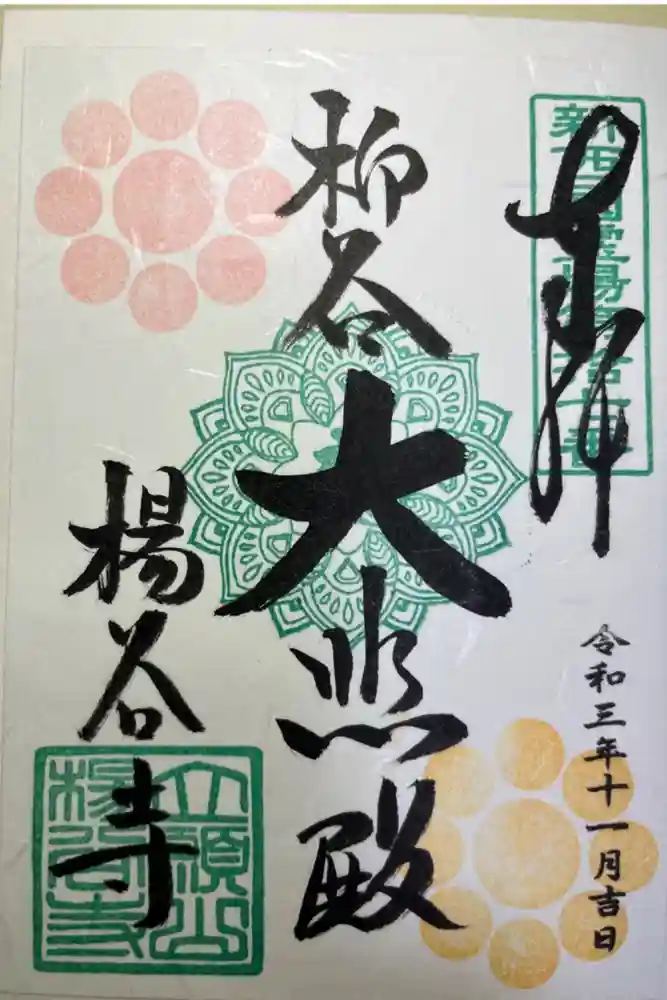 奉拝
新西國霊場第拾七番
令和三年十一月吉日
柳谷
大悲殿
楊谷寺
立願山
楊谷寺